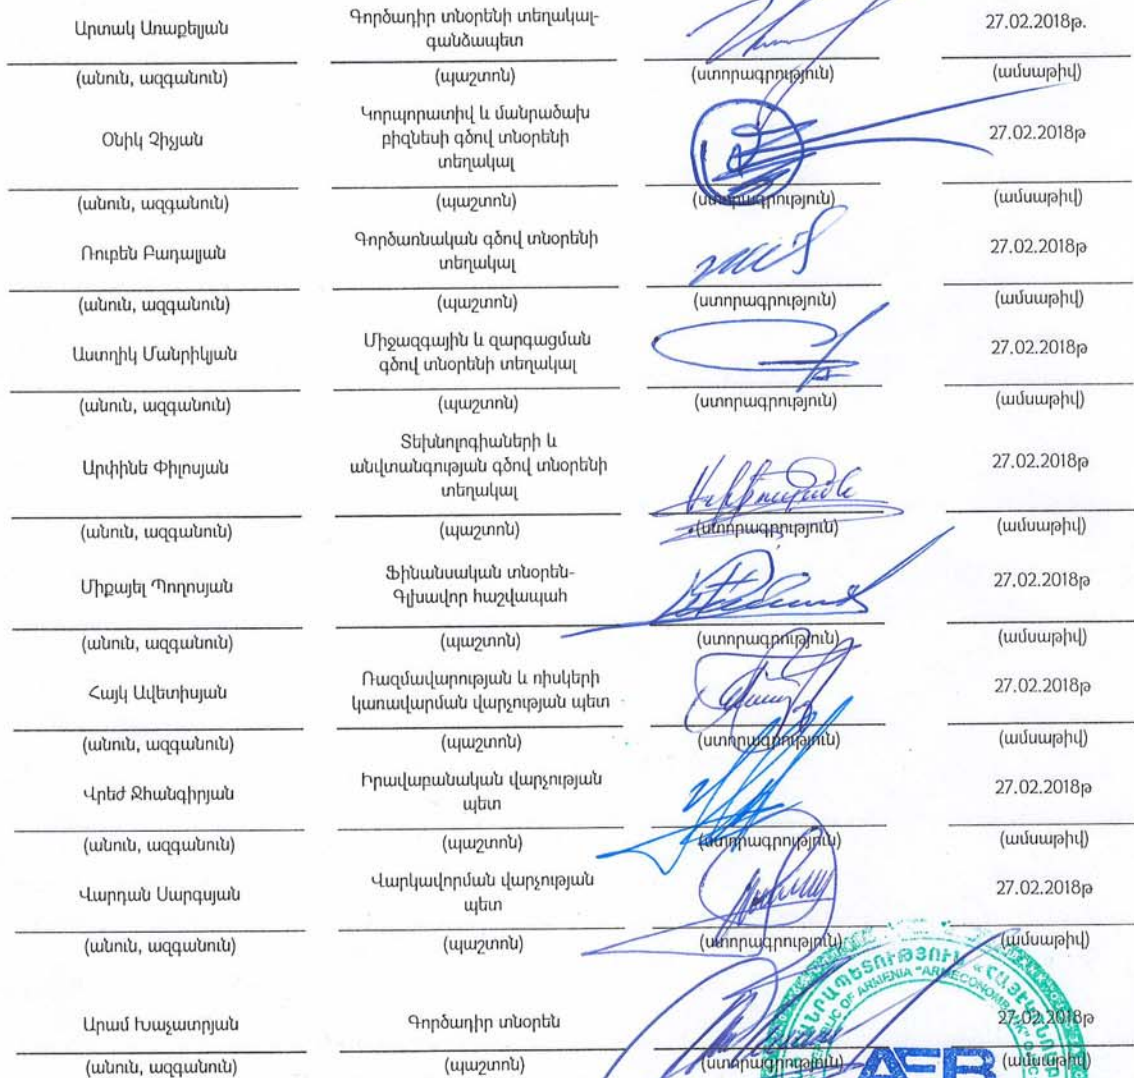 Արտակ Առաքելյան
Գործադիր տնօրենի տեղակալ-
գանձապետ
27.02.2018թ.
(անուն, ազգանուն) (պաշտոն) (ստորագրություն) (ամսաթիվ)
Օնիկ Չիչյան
Կորպորատիվ և մանրածախ
բիզնեսի գծով տնօրենի
տեղակալ
27.02.2018թ
(անուն, ազգանուն) (պաշտոն) (ստորագրություն) (ամսաթիվ)
Ռուբեն Բադալյան
Գործառնական գծով տնօրենի
տեղակալ
27.02.2018թ
(անուն, ազգանուն) (պաշտոն) (ստորագրություն) (ամսաթիվ)
Աստղիկ Մանրիկյան
Միջազգային և զարգացման
գծով տնօրենի տեղակալ
27.02.2018թ
(անուն, ազգանուն) (պաշտոն) (ստորագրություն) (ամսաթիվ)
Արփինե Փիլոսյան
Տեխնոլոգիաների և
անվտանգության գծով տնօրենի
տեղակալ
27.02.2018թ
(անուն, ազգանուն) (պաշտոն) (ստորագրություն) (ամսաթիվ)
Միքայել Պողոսյան
Ֆինանսական տնօրեն-
Գլխավոր հաշվապահ
27.02.2018թ
(անուն, ազգանուն) (պաշտոն) (ստորագրություն) (ամսաթիվ)
Հայկ Ավետիսյան
Ռազմավարության և ռիսկերի
կառավարման վարչության պետ
27.02.2018թ
(անուն, ազգանուն) (պաշտոն) (ստորագրություն) (ամսաթիվ)
Վրեժ Ջհանգիրյան
Իրավաբանական վարչության
պետ
27.02.2018թ
(անուն, ազգանուն) (պաշտոն) (ստորագրություն) (ամսաթիվ)
Վարդան Սարգսյան
Վարկավորման վարչության
պետ
27.02.2018թ
(անուն, ազգանուն) (պաշտոն) (ստորագրություն) (ամսաթիվ)
Արամ Խաչատրյան
Գործադիր տնօրեն
27.02.2018թ
(անուն, ազգանուն) (պաշտոն) (ստորագրություն) (ամսաթիվ)
OF ARMENIA "ARMECONOMBANK"
AEB